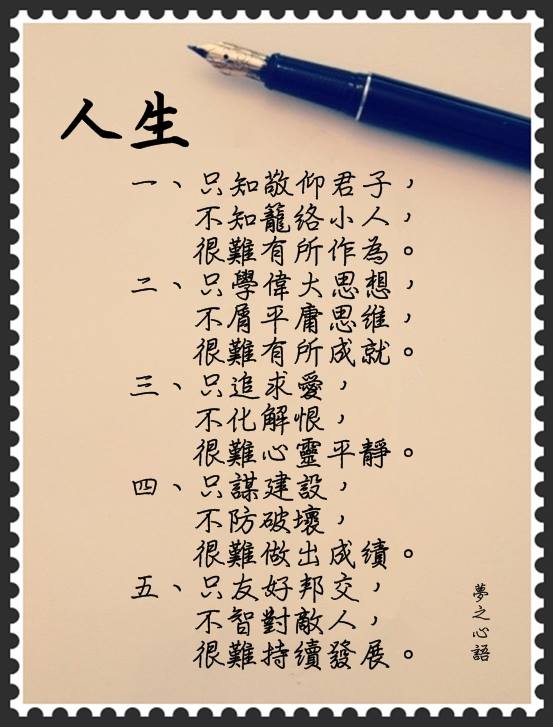 人生
一、只知敬仰君子，
不知籠絡小人，
很難有所作為。
二、只學偉大思想，
不屑平庸思維，
很難有所成就。
三、只追求愛，
不化解恨，
很難心靈平靜。
四、只謀建設，
不防破壞，
很難做出成績。
五、只友好邦交，
不智對敵人，
很難持續發展。
夢之心語